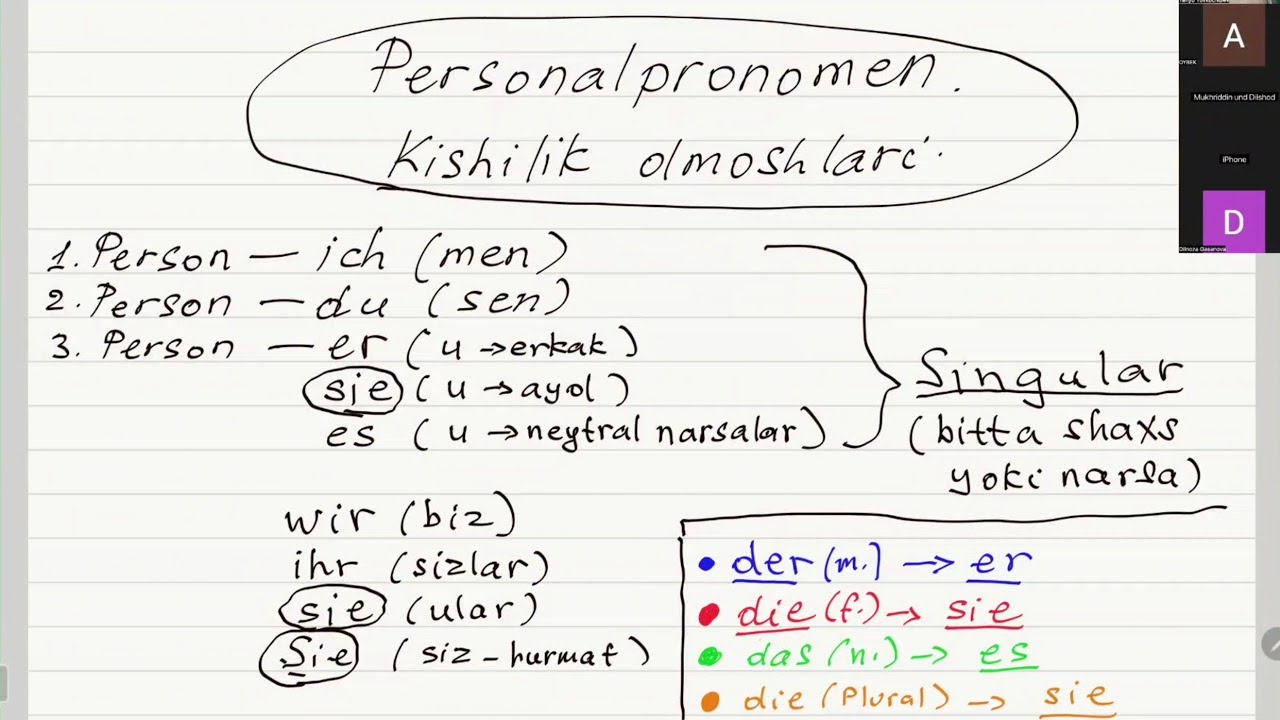 Personalpronomen.
Kishilik olmoshlari.
1. Person — ich (men)
2. Person — du (sen)
3. Person — er (u → erkak)
sie (u → ayol)
es (u → neytral narsalar)
Singular
(bitta shaxs
yoki narsa)
wir (biz)
ihr (sizlar)
sie (ular)
Sie (siz – hurmat)
• der (m.) → er
• die (f.) → sie
• das (n.) → es
• die (Plural) → sie
A
OYBEK
Mukhriddin und Dilshod
iPhone
D
Dilnoza Gasanova